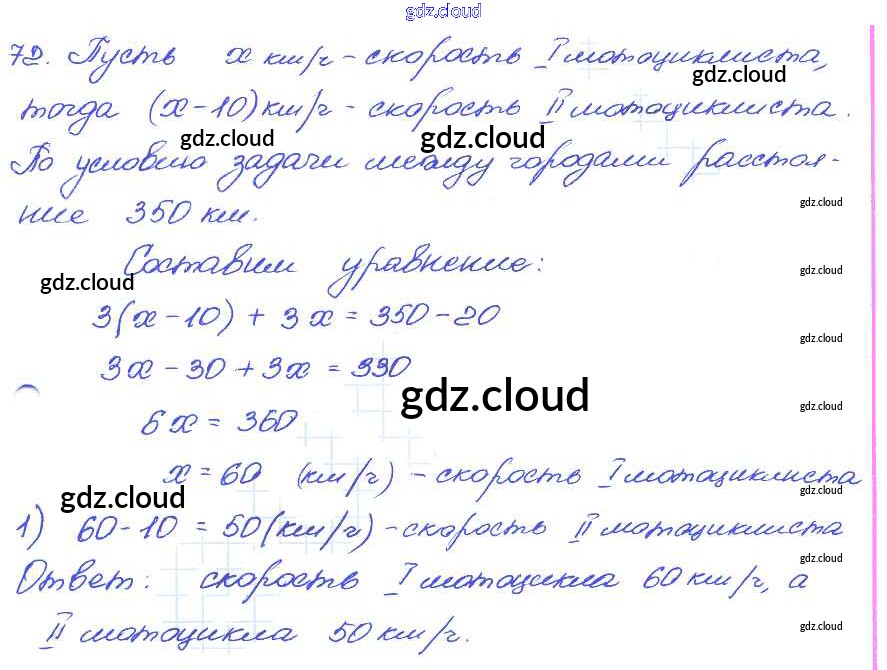 gdz.cloud
72. Пусть х км/г - скорость I мотоциклиста,
gdz.cloud
тогда (х-10) км/г - скорость II мотоциклиста.
gdz.cloud gdz.cloud
По условию задачи между городами расстоя-
ние 350 км.
gdz.cloud
Составим уравнение:
gdz.cloud
gdz.cloud
3(х-10) + 3х = 350-20
gdz.cloud
3х - 30 + 3х = 330
gdz.cloud
gdz.cloud
6х = 360
х = 60 (км/г) - скорость I мотоциклиста
gdz.cloud
gdz.cloud
1) 60-10 = 50 (км/г) - скорость II мотоциклиста
gdz.cloud
Ответ: скорость I мотоцикла 60 км/г, а
II мотоцикла 50 км/г.
gdz.cloud